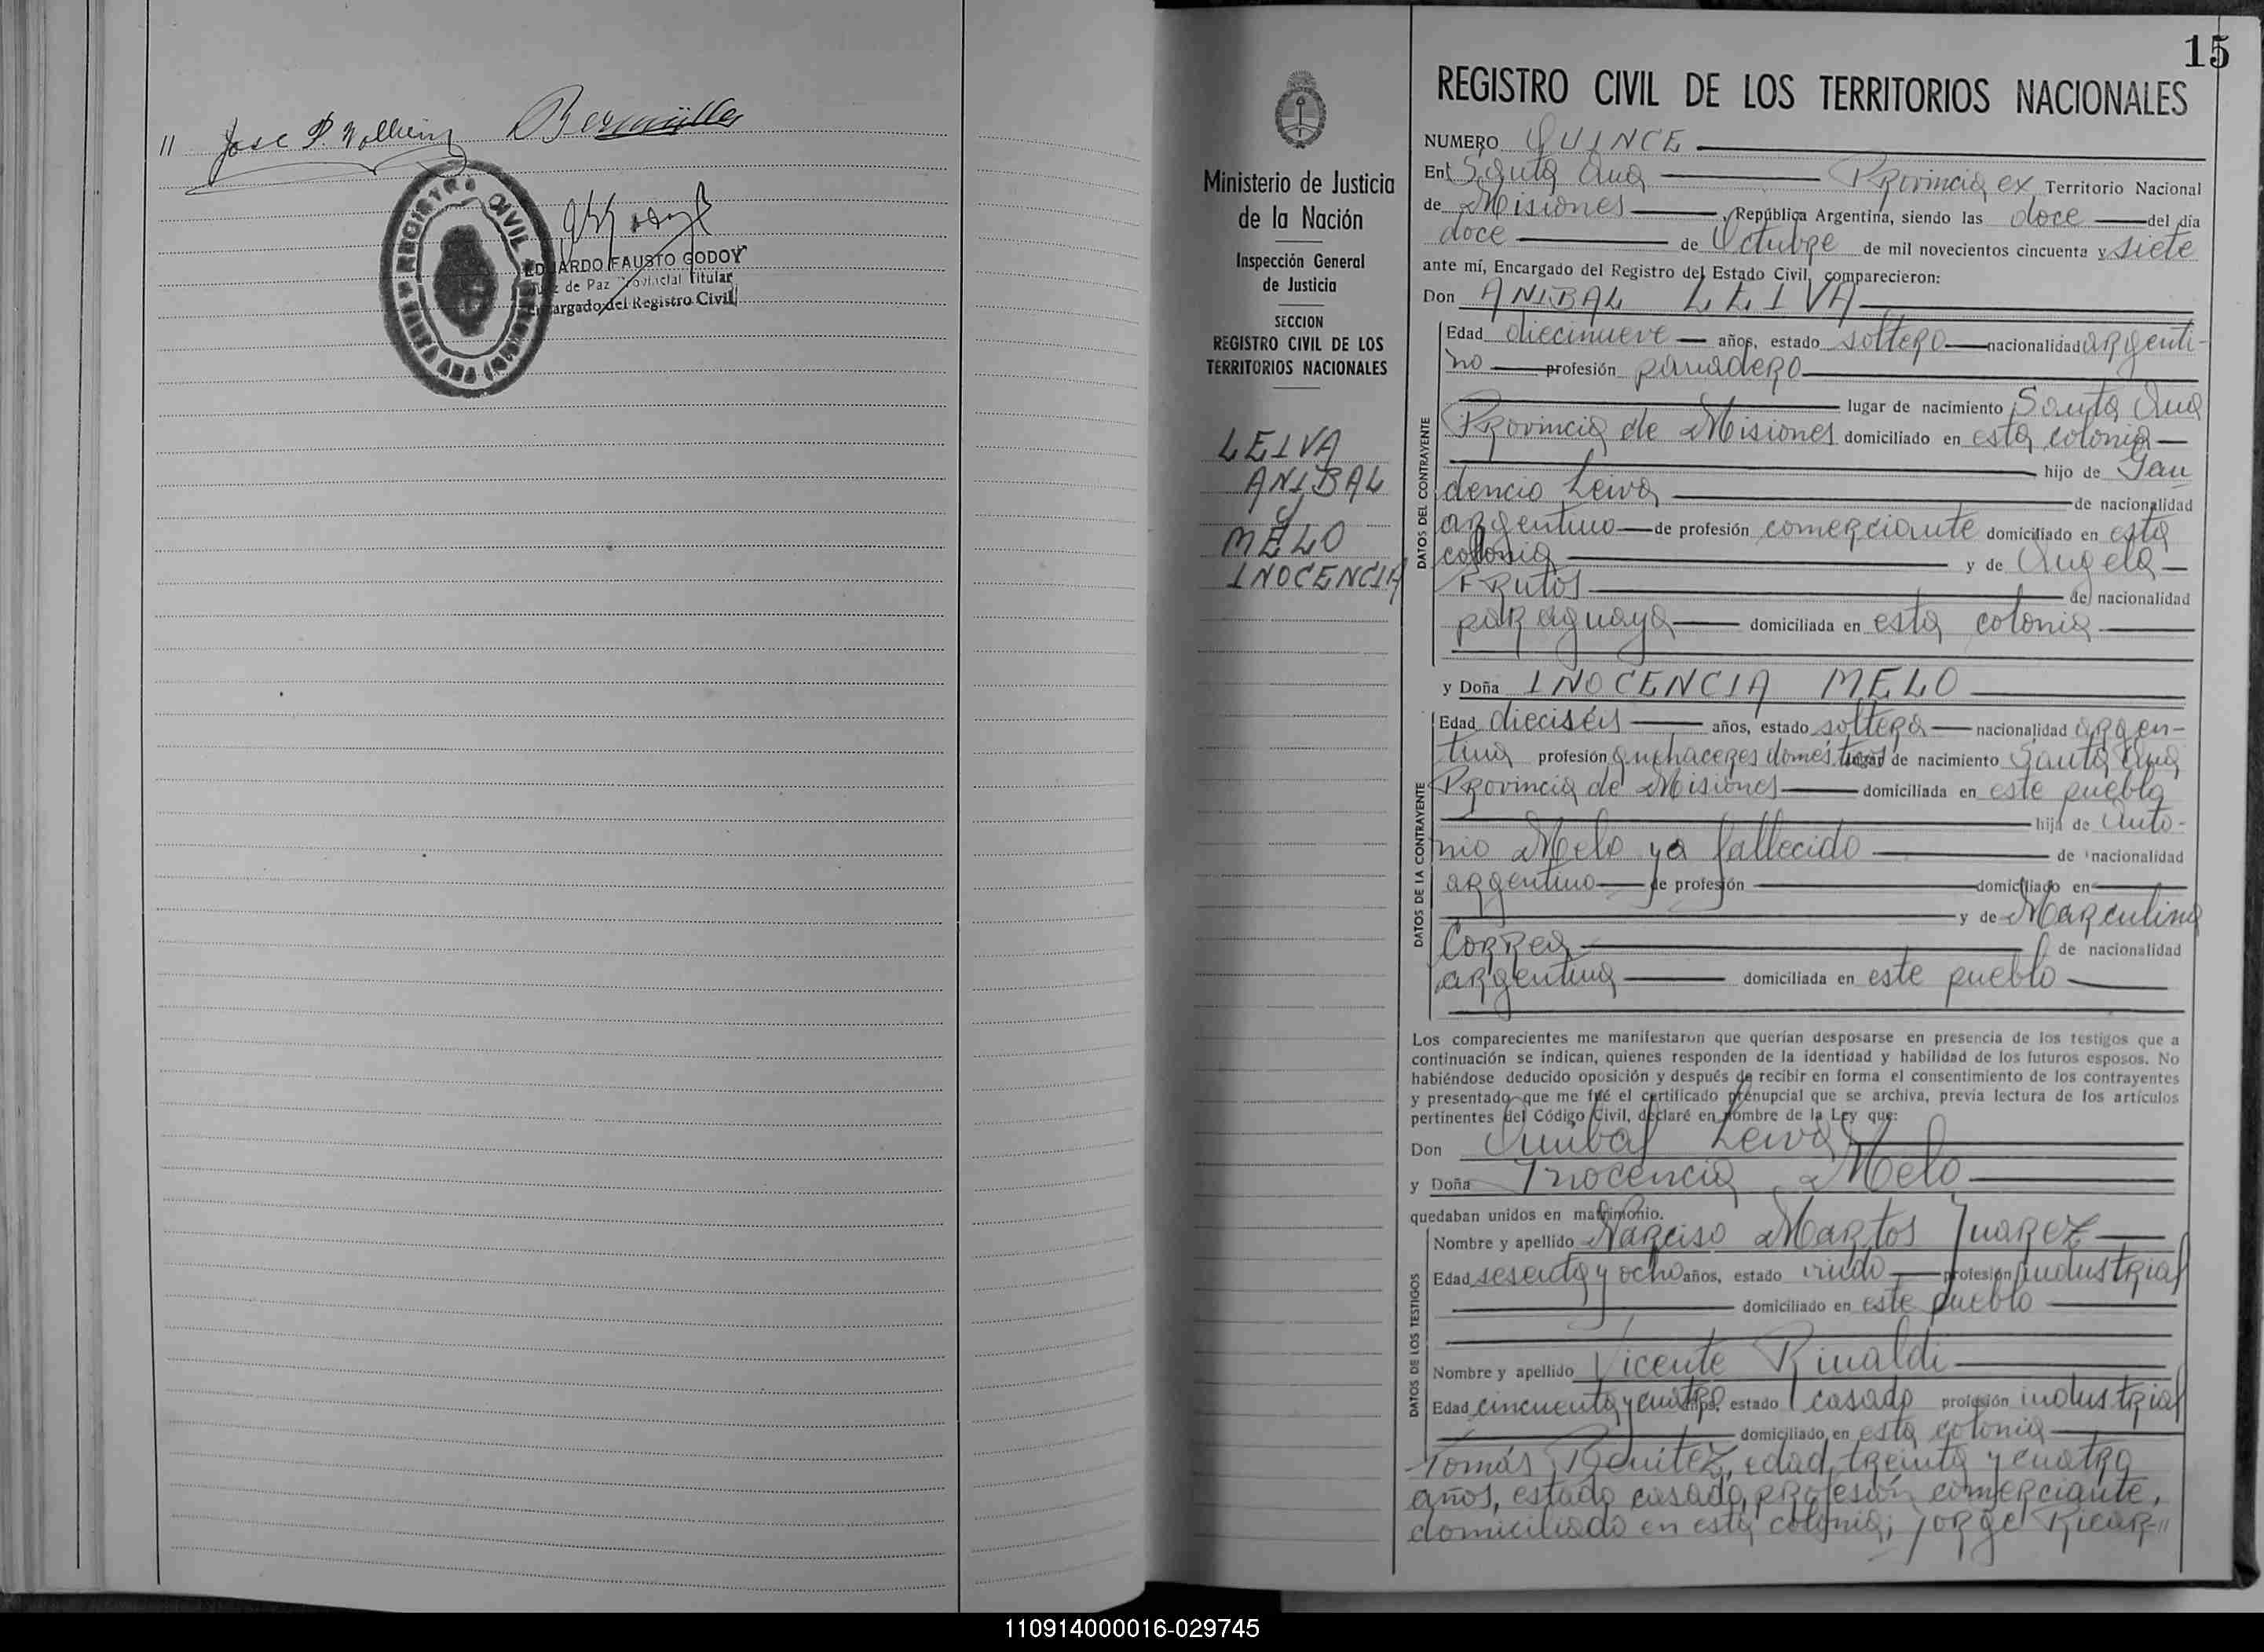 " Jose P.
REGISTRO CIVIL
SANTA ANA
EDUARDO FAUSTO GODOY
Juez de Paz Provincial Titular
Encargado del Registro Civil
15
Ministerio de Justicia
de la Nación
Inspección General
de Justicia
SECCION
REGISTRO CIVIL DE LOS
TERRITORIOS NACIONALES
LEIVA
ANIBAL
y
MELO
INOCENCIA
REGISTRO CIVIL DE LOS TERRITORIOS NACIONALES
NUMERO QUINCE
En Santa Ana Provincia ex Territorio Nacional
de Misiones, República Argentina, siendo las doce del día
doce de Octubre de mil novecientos cincuenta y siete
ante mí, Encargado del Registro del Estado Civil, comparecieron:
Don ANIBAL LEIVA
DATOS DEL CONTRAYENTE
Edad diecinueve años, estado soltero nacionalidad argenti-
no profesión panadero
lugar de nacimiento Santa Ana
Provincia de Misiones domiciliado en esta colonia
hijo de Gau-
dencio Leiva de nacionalidad
argentino de profesión comerciante domiciliado en esta
colonia y de Angela
Frutos de nacionalidad
paraguaya domiciliada en esta colonia
y Doña INOCENCIA MELO
DATOS DE LA CONTRAYENTE
Edad dieciséis años, estado soltera nacionalidad argen-
tina profesión quehaceres domésticos lugar de nacimiento Santa Ana
Provincia de Misiones domiciliada en este pueblo
hija de Anto-
nio Melo ya fallecido de nacionalidad
argentino de profesión domiciliado en
y de Marculina
Correa de nacionalidad
argentina domiciliada en este pueblo
Los comparecientes me manifestaron que querían desposarse en presencia de los testigos que a
continuación se indican, quienes responden de la identidad y habilidad de los futuros esposos. No
habiéndose deducido oposición y después de recibir en forma el consentimiento de los contrayentes
y presentado que me fué el certificado prenupcial que se archiva, previa lectura de los artículos
pertinentes del Código Civil, declaré en nombre de la Ley que:
Don Anibal Leiva
y Doña Inocencia Melo
quedaban unidos en matrimonio.
DATOS DE LOS TESTIGOS
Nombre y apellido Narciso Martos Juarez
Edad sesenta y ocho años, estado viudo profesión industrial
domiciliado en este pueblo
Nombre y apellido Vicente Rinaldi
Edad cincuenta y cuatro años, estado casado profesión industrial
domiciliado en esta colonia
Tomás Benitez, edad treinta y cuatro
años, estado casado, profesión comerciante,
domiciliado en esta colonia; Jorge Ricar-"
110914000016-029745